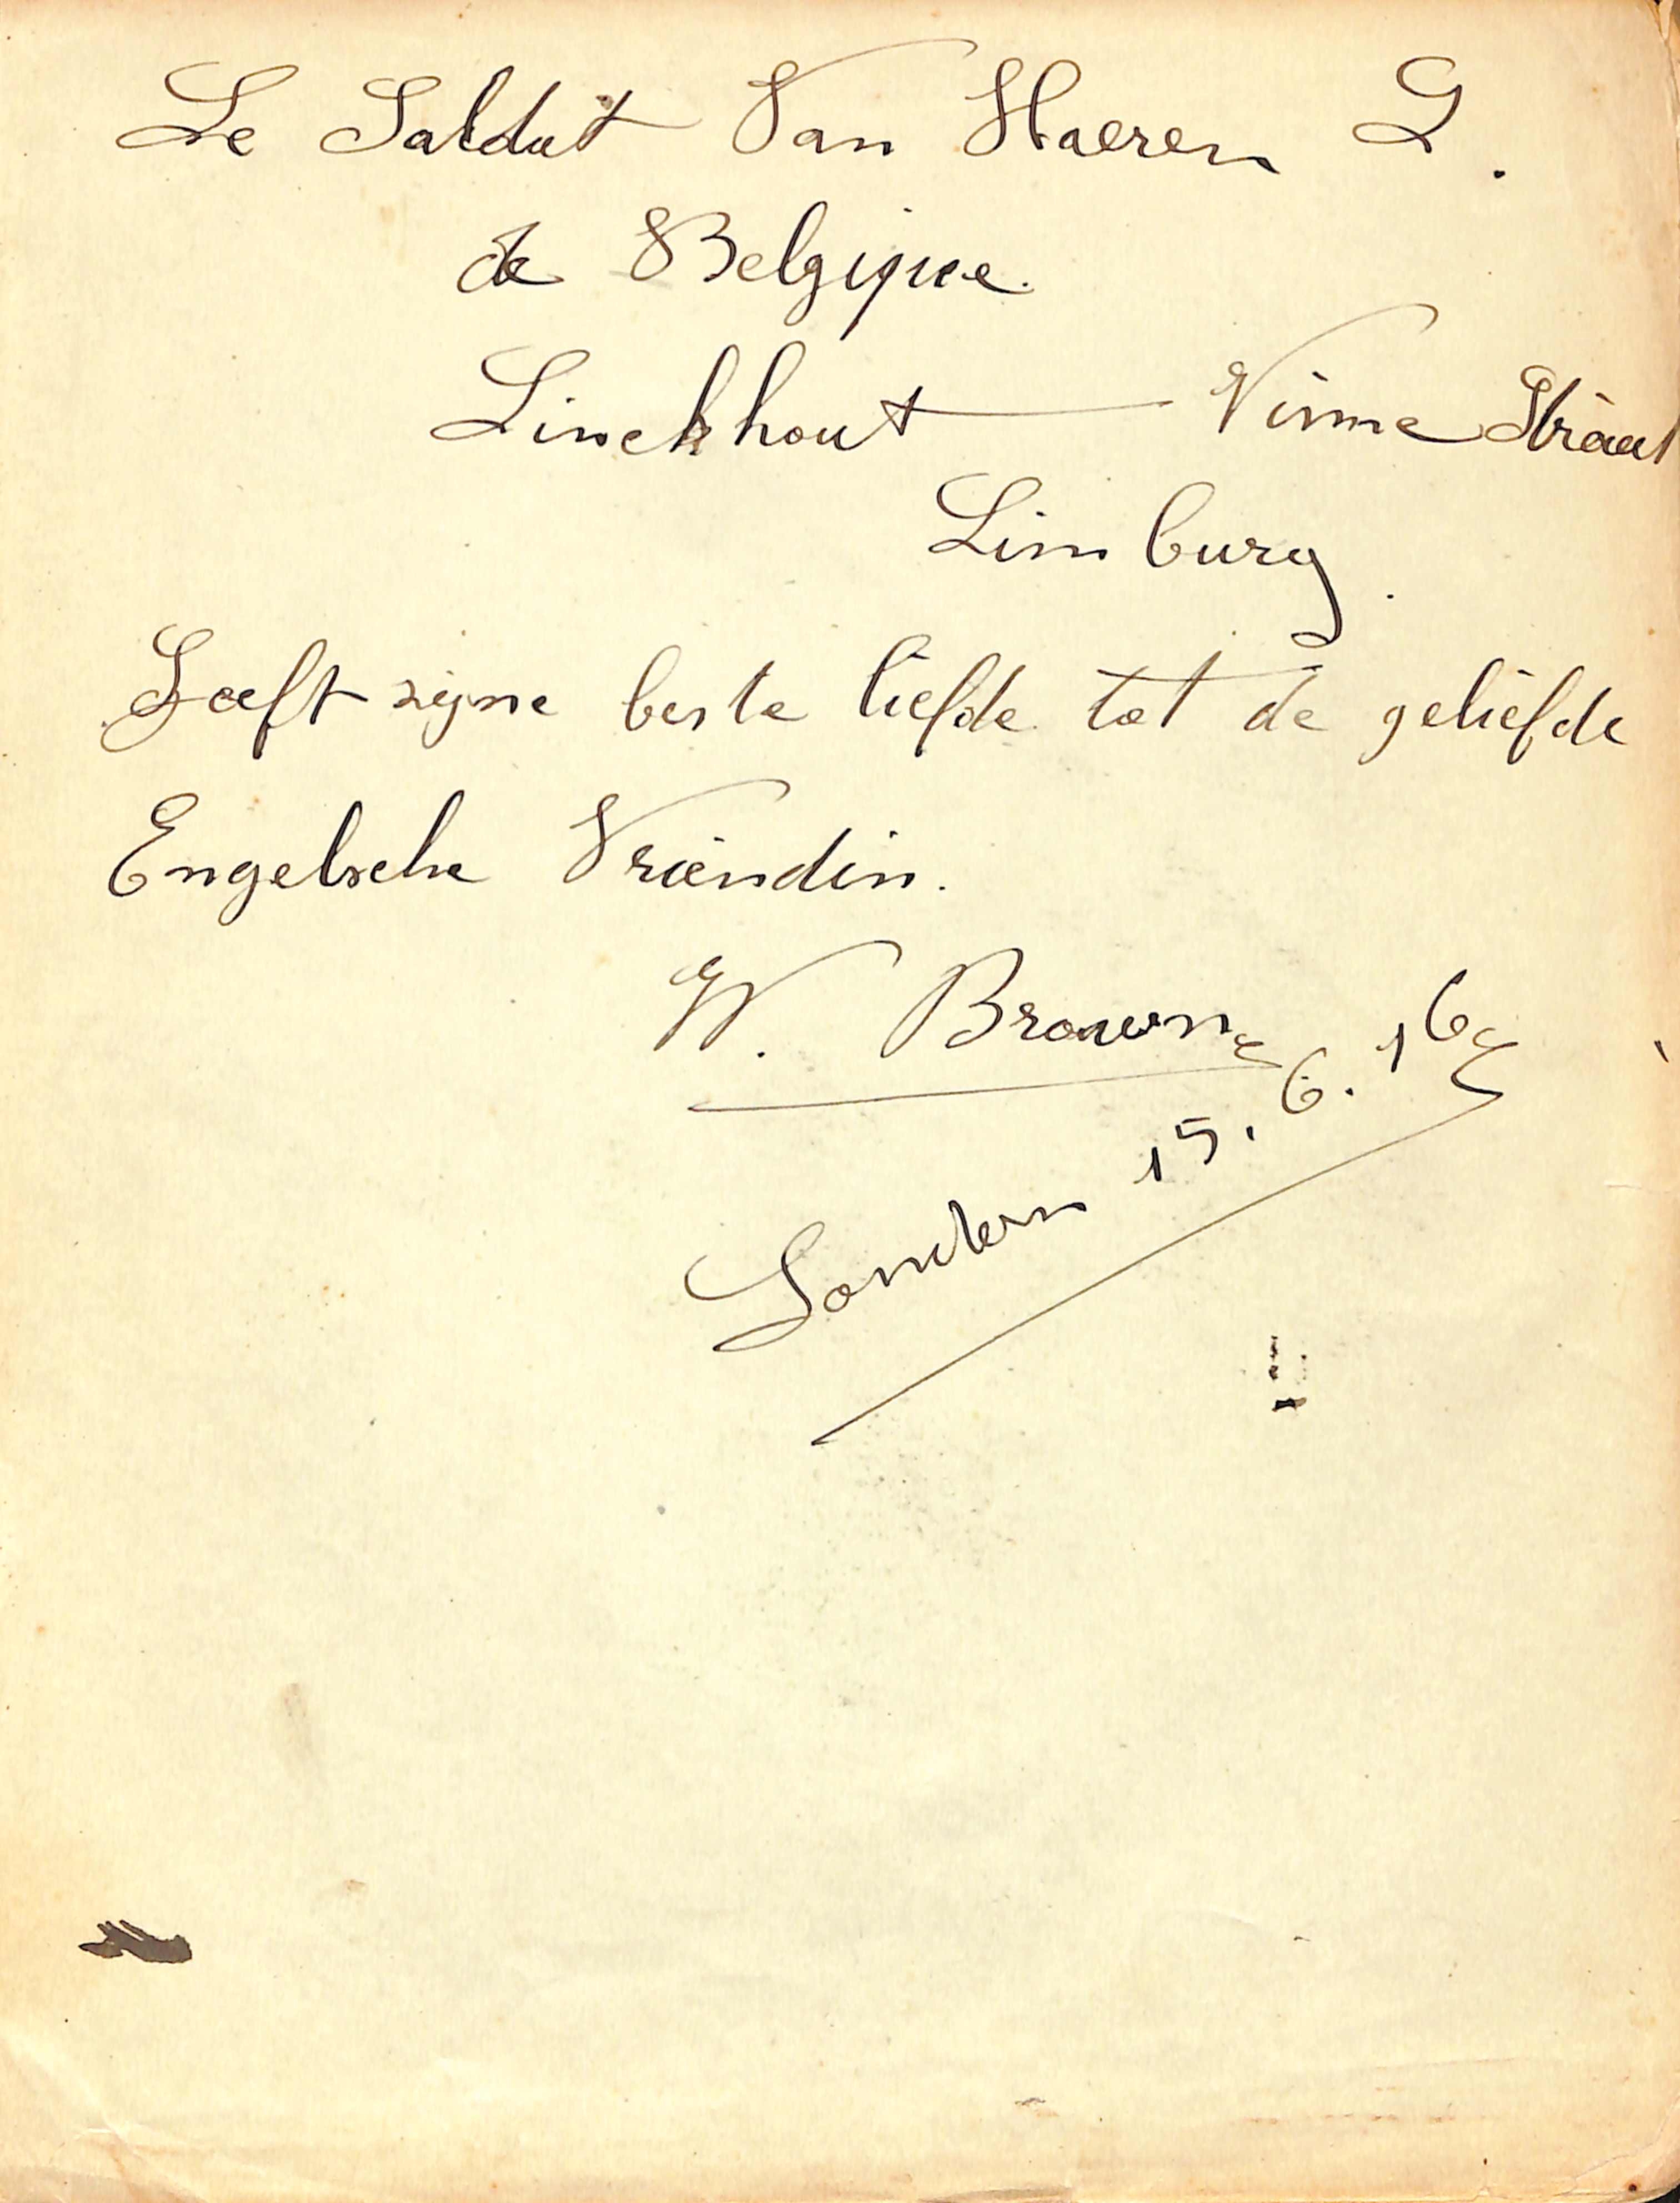 Le Saldat Van Haeren G.
de Belgique.
Linckhout — Vinne Straat
Limburg.
Geeft zijne beste liefde tot de geliefde
Engelsche Vriendin.
W. Browne
London 15.6.16